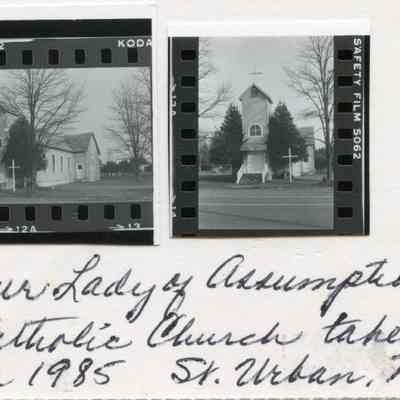 KODA
SAFETY FILM 5062
12A
13
ur Lady of Assumptio
atholic Church take
1985 St. Urban,